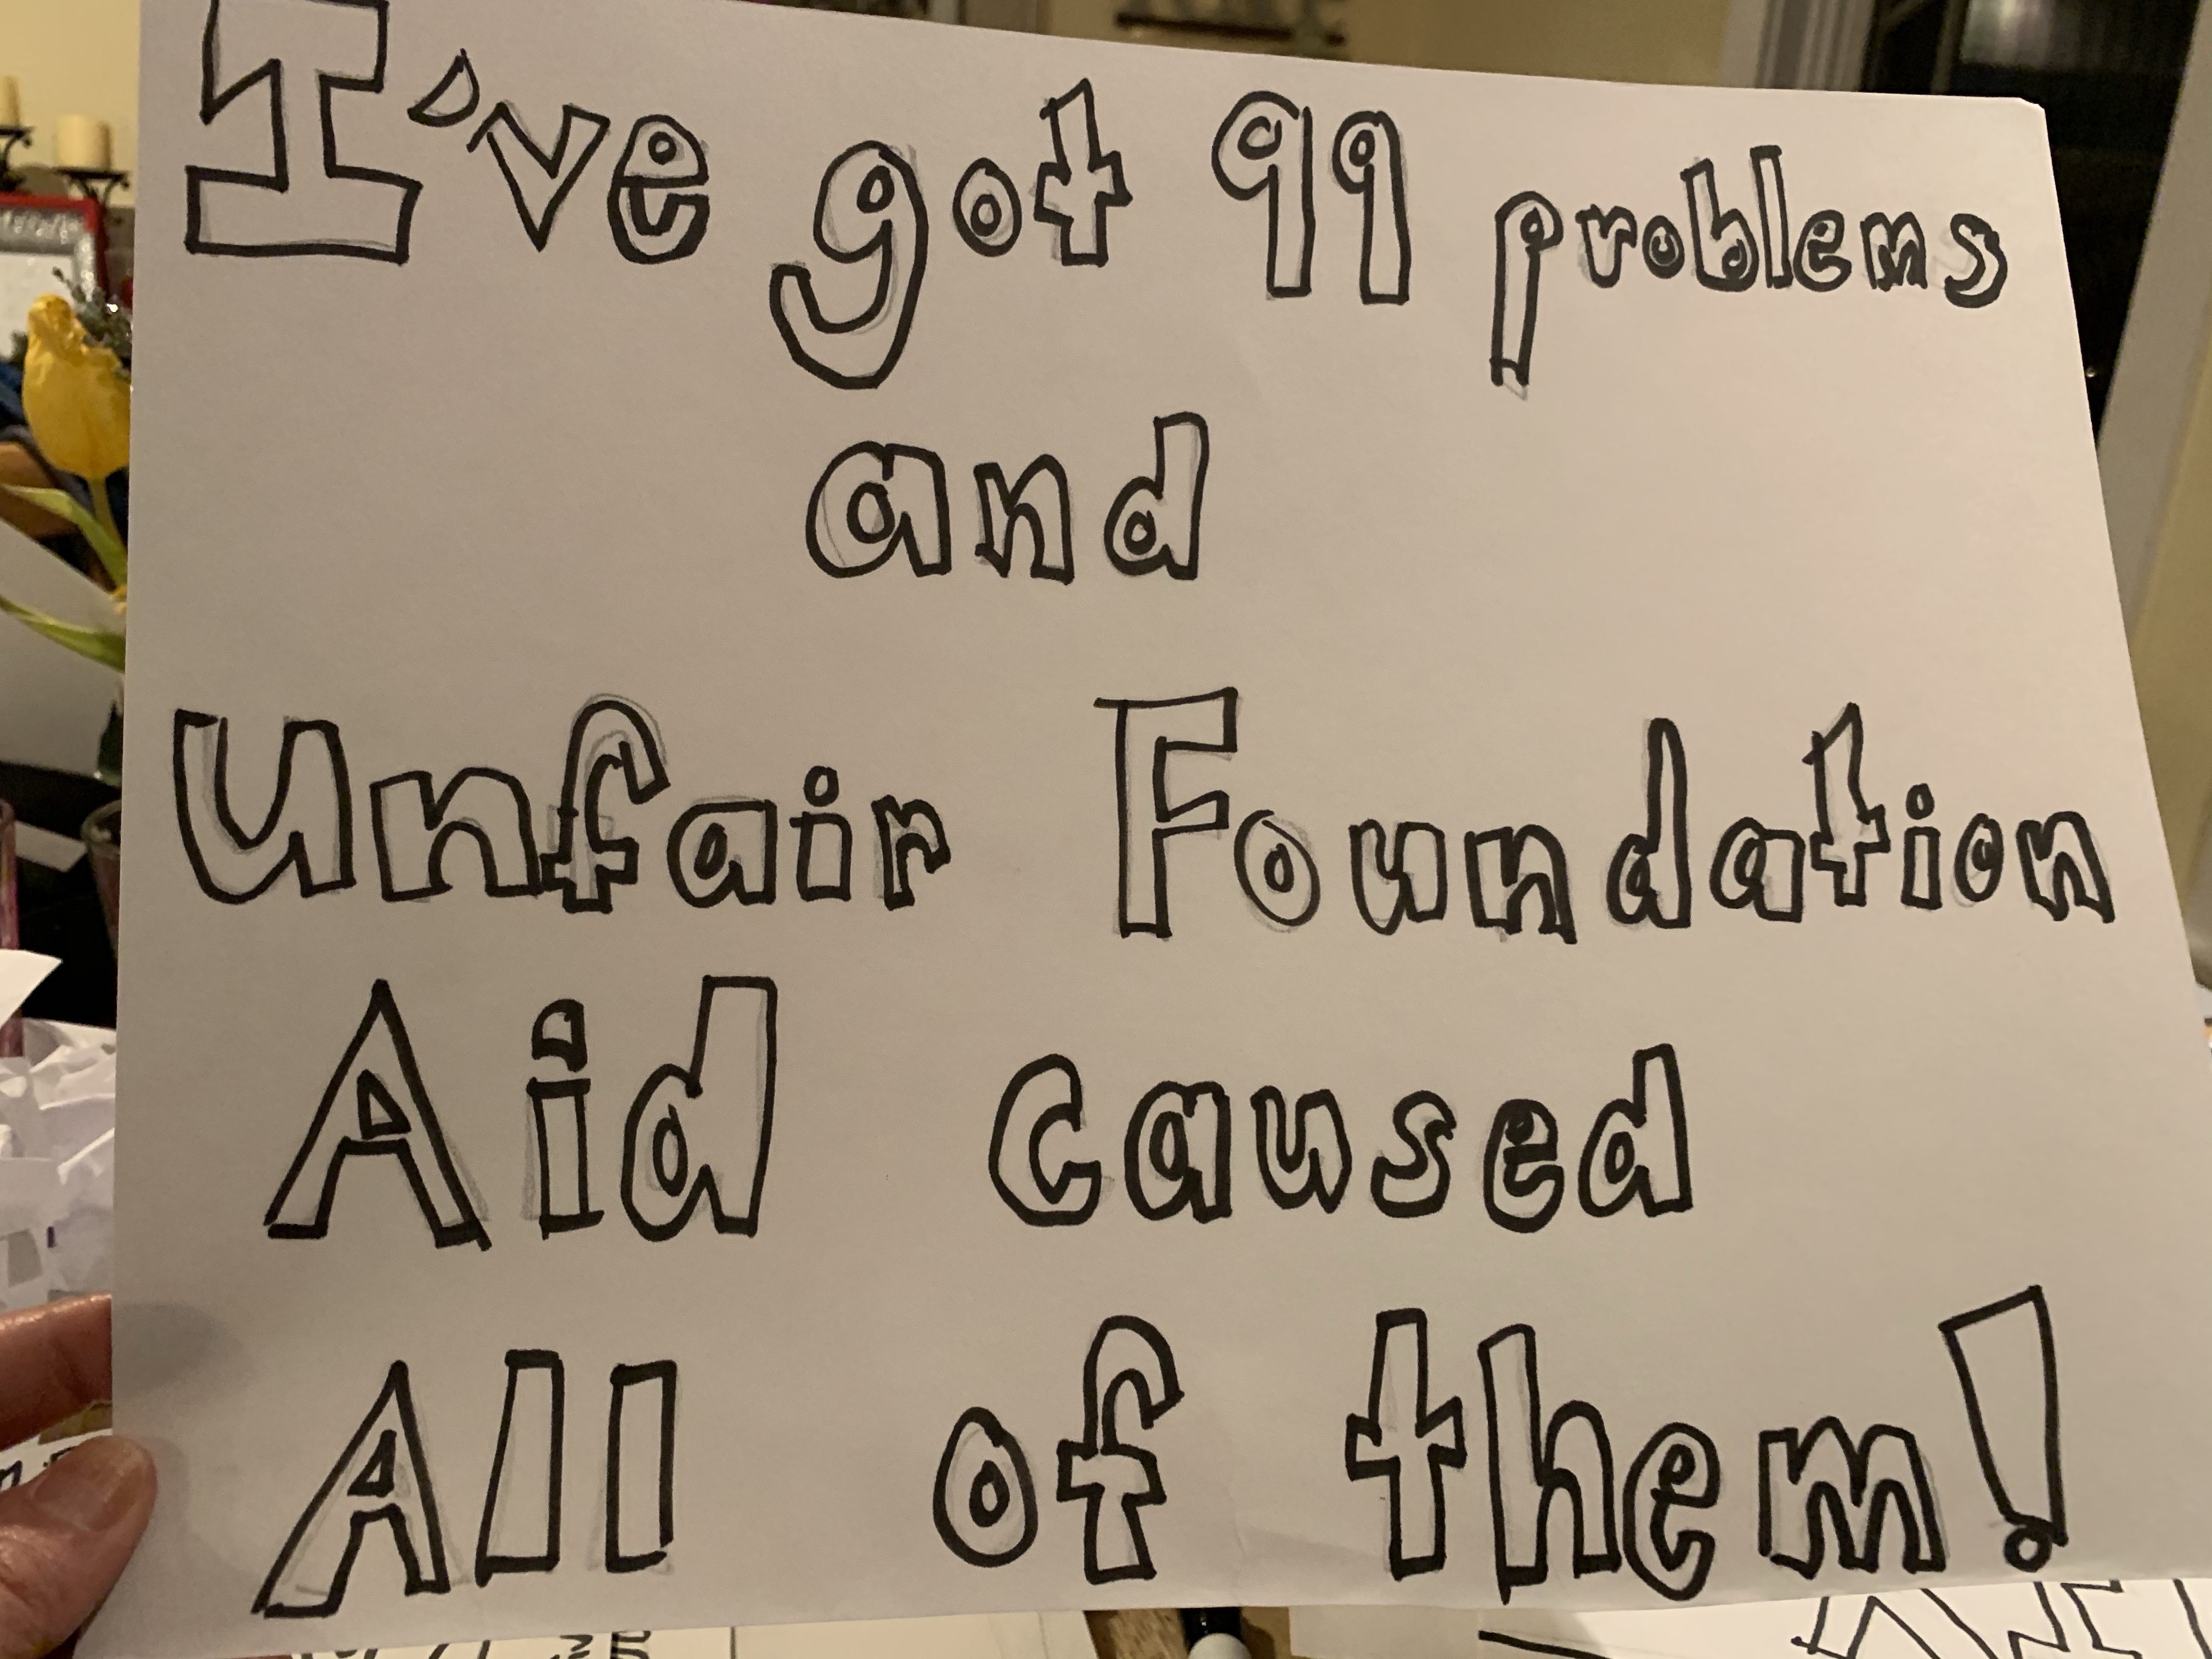 I've got 99 problems
and
Unfair Foundation
Aid caused
All of them!